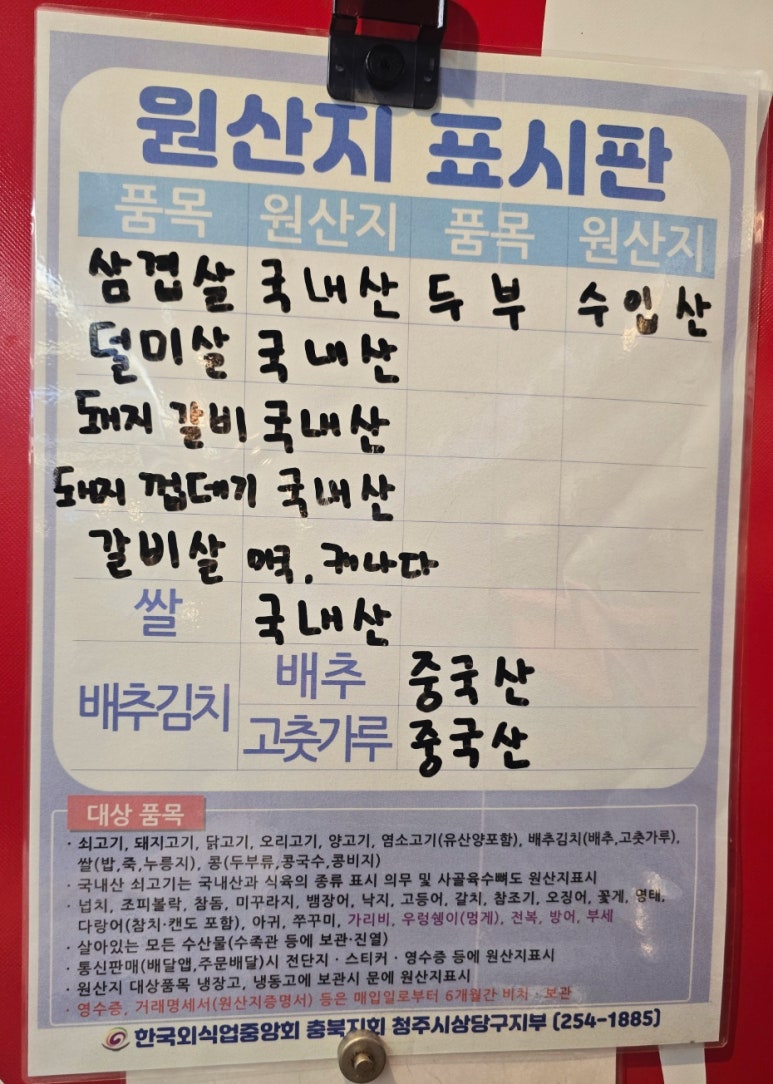 원산지 표시판
품목 원산지 품목 원산지
삼겹살 국내산 두부 수입산
덜미살 국내산
돼지갈비 국내산
돼지 껍데기 국내산
갈비살 미국, 캐나다
쌀 국내산
배추김치 배추 중국산
고춧가루 중국산
대상 품목
· 쇠고기, 돼지고기, 닭고기, 오리고기, 양고기, 염소고기(유산양포함), 배추김치(배추,고춧가루),
쌀(밥,죽,누룽지), 콩(두부류,콩국수,콩비지)
· 국내산 쇠고기는 국내산과 식육의 종류 표시 의무 및 사골육수뼈도 원산지표시
· 넙치, 조피볼락, 참돔, 미꾸라지, 뱀장어, 낙지, 고등어, 갈치, 참조기, 오징어, 꽃게, 명태,
다랑어(참치·캔도 포함), 아귀, 쭈꾸미, 가리비, 우렁쉥이(멍게), 전복, 방어, 부세
· 살아있는 모든 수산물(수족관 등에 보관·진열)
· 통신판매(배달앱,주문배달)시 전단지 · 스티커 · 영수증 등에 원산지표시
· 원산지 대상품목 냉장고, 냉동고에 보관시 문에 원산지표시
· 영수증, 거래명세서(원산지증명서) 등은 매입일로부터 6개월간 비치 · 보관
한국외식업중앙회 충북지회 청주시상당구지부 (254-1885)